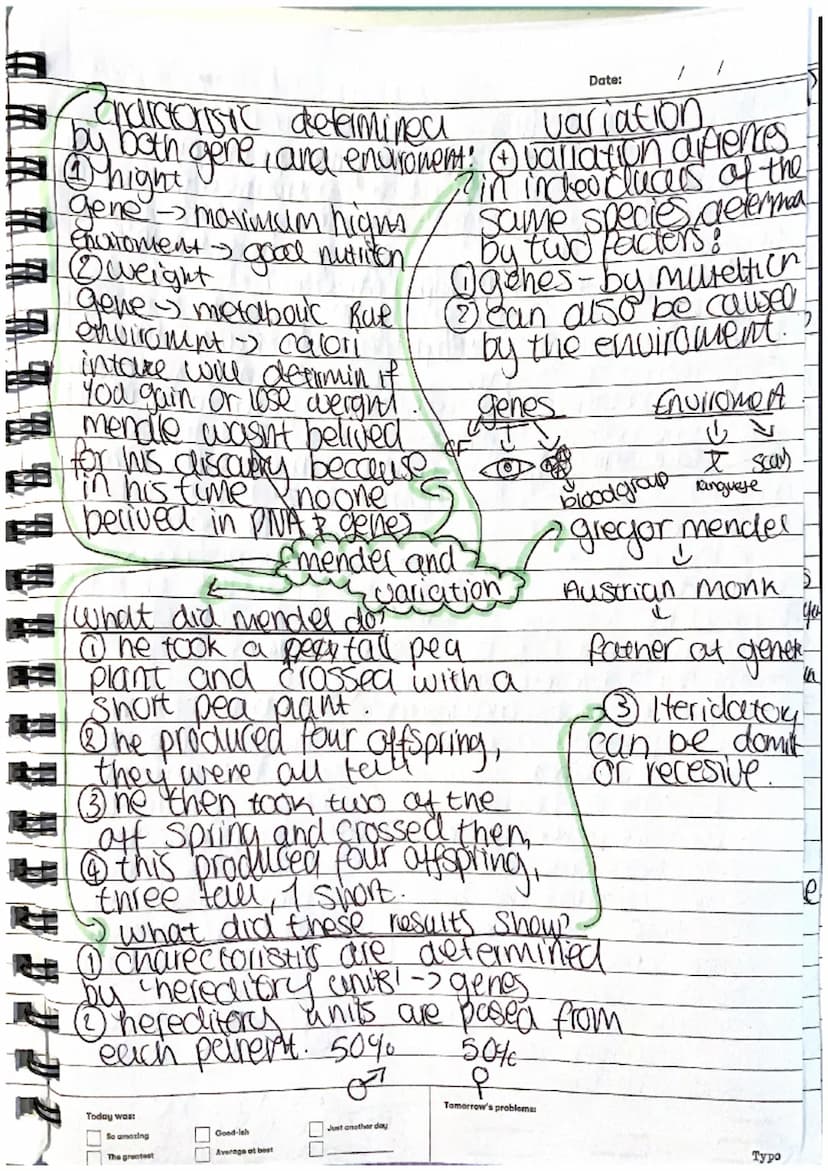 Date: / /
charictoristic determined
by both gene, and enviroment:
① hight
gene -> maximum hight
enviroment -> good nutrition
② weight
gene -> metabolic Rate
enviromnt -> calori
intake will determin if
you gain or lose weight.
mendle wasnt belived
for his discovery because
in his time no one
belived in DNA & genes
variation
+ variation difrences
in indeviduals of the
same species, determed
by two factors:
① genes - by mutettion
② can also be caused
by the enviroment.
genes
bloodgroup
Enviroment
language
scars
mendel and
variation
gregor mendel
Austrian monk
father of genet
What did mendel do?
① he took a tall pea
plant and crossed with a
short pea plant.
② he produced four offspring,
they were all tall
③ he then took two of the
off spring and crossed then,
④ this produced four offspring,
three tall, 1 short.
what did these results show?
① charectoristic are determined
by 'hereditry units' -> genes
② hereditory units are pased from
each parent. 50% 50%
♂ ♀
③ Heridatory
can be domit
or recesive.
Today was:
So amazing
The greatest
Good-ish
Average at best
Just another day
Tomorrow's problems:
Typo